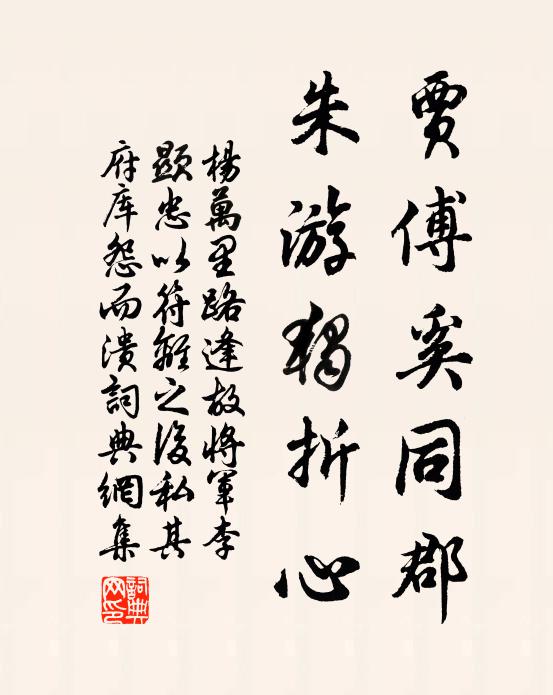 賈傅奚同郡
朱游獨折心
楊萬里路逢故將軍李
顯忠以符離之役私其
府庫怨而潰詞典網集